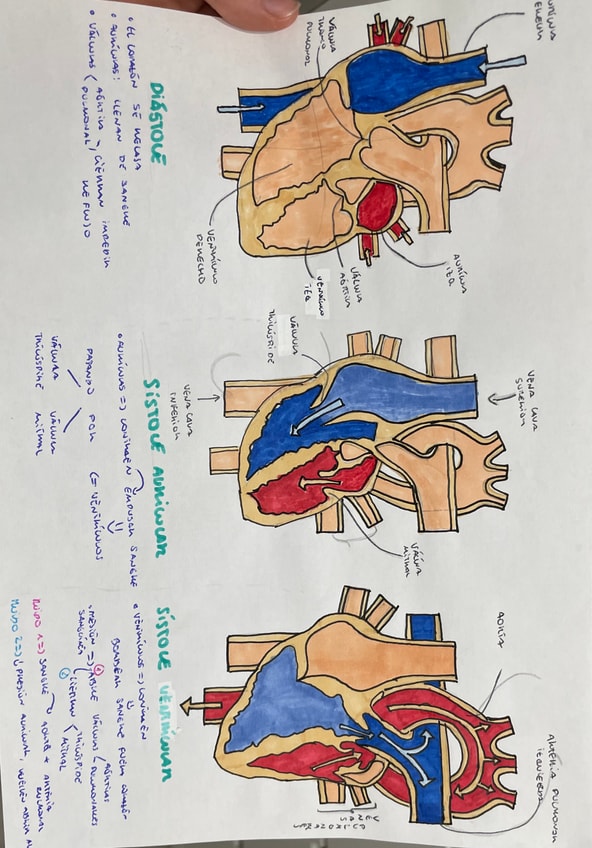 AURÍCULA
DERECHA
VÁLVULA
TRONCO
PULMONAR
VENTRÍCULO
DERECHO
VENTRÍCULO
IZQ
VÁLVULA
AÓRTICA
AURÍCULA
IZQ
DIÁSTOLE
• EL CORAZÓN SE RELAJA
• AURÍCULAS: LLENAN DE SANGRE
• VÁLVULAS ( AÓRTICA
PULMONAL ) CIERRAN IMPEDIR
REFLUJO
VENA CAVA
SUPERIOR
VÁLVULA
TRICÚSPIDE
VENA CAVA
INFERIOR
VÁLVULA
MITRAL
SÍSTOLE AURICULAR
• AURÍCULAS => CONTRAEN EMPUJAR SANGRE
PASANDO POR (= VENTRÍCULOS
VÁLVULA
TRICÚSPIDE
VÁLVULA
MITRAL
AORTA
ARTERIA PULMONAR
IZQUIERDA
VENAS
PULMONARES
SÍSTOLE VENTRICULAR
• VENTRÍCULOS => CONTRAEN
BOMBEAR SANGRE FUERA CORAZÓN
• PRESIÓN => ① ABRE VÁLVULAS ( AÓRTICAS
PULMONARES
SANGUÍNEA ② CIERRAN ( TRICÚSPIDE
MITRAL
RUIDO 1 => SANGRE AORTA + ARTERIA
PULMONAR
RUIDO 2 => ↓ PRESIÓN AURICULAR,